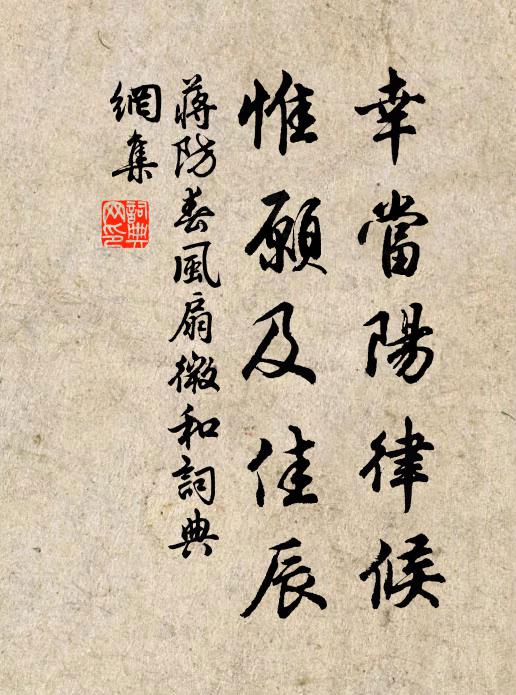 幸當陽律候
惟願及佳辰
蔣防春風扇微和詞典
網集
詞典網印